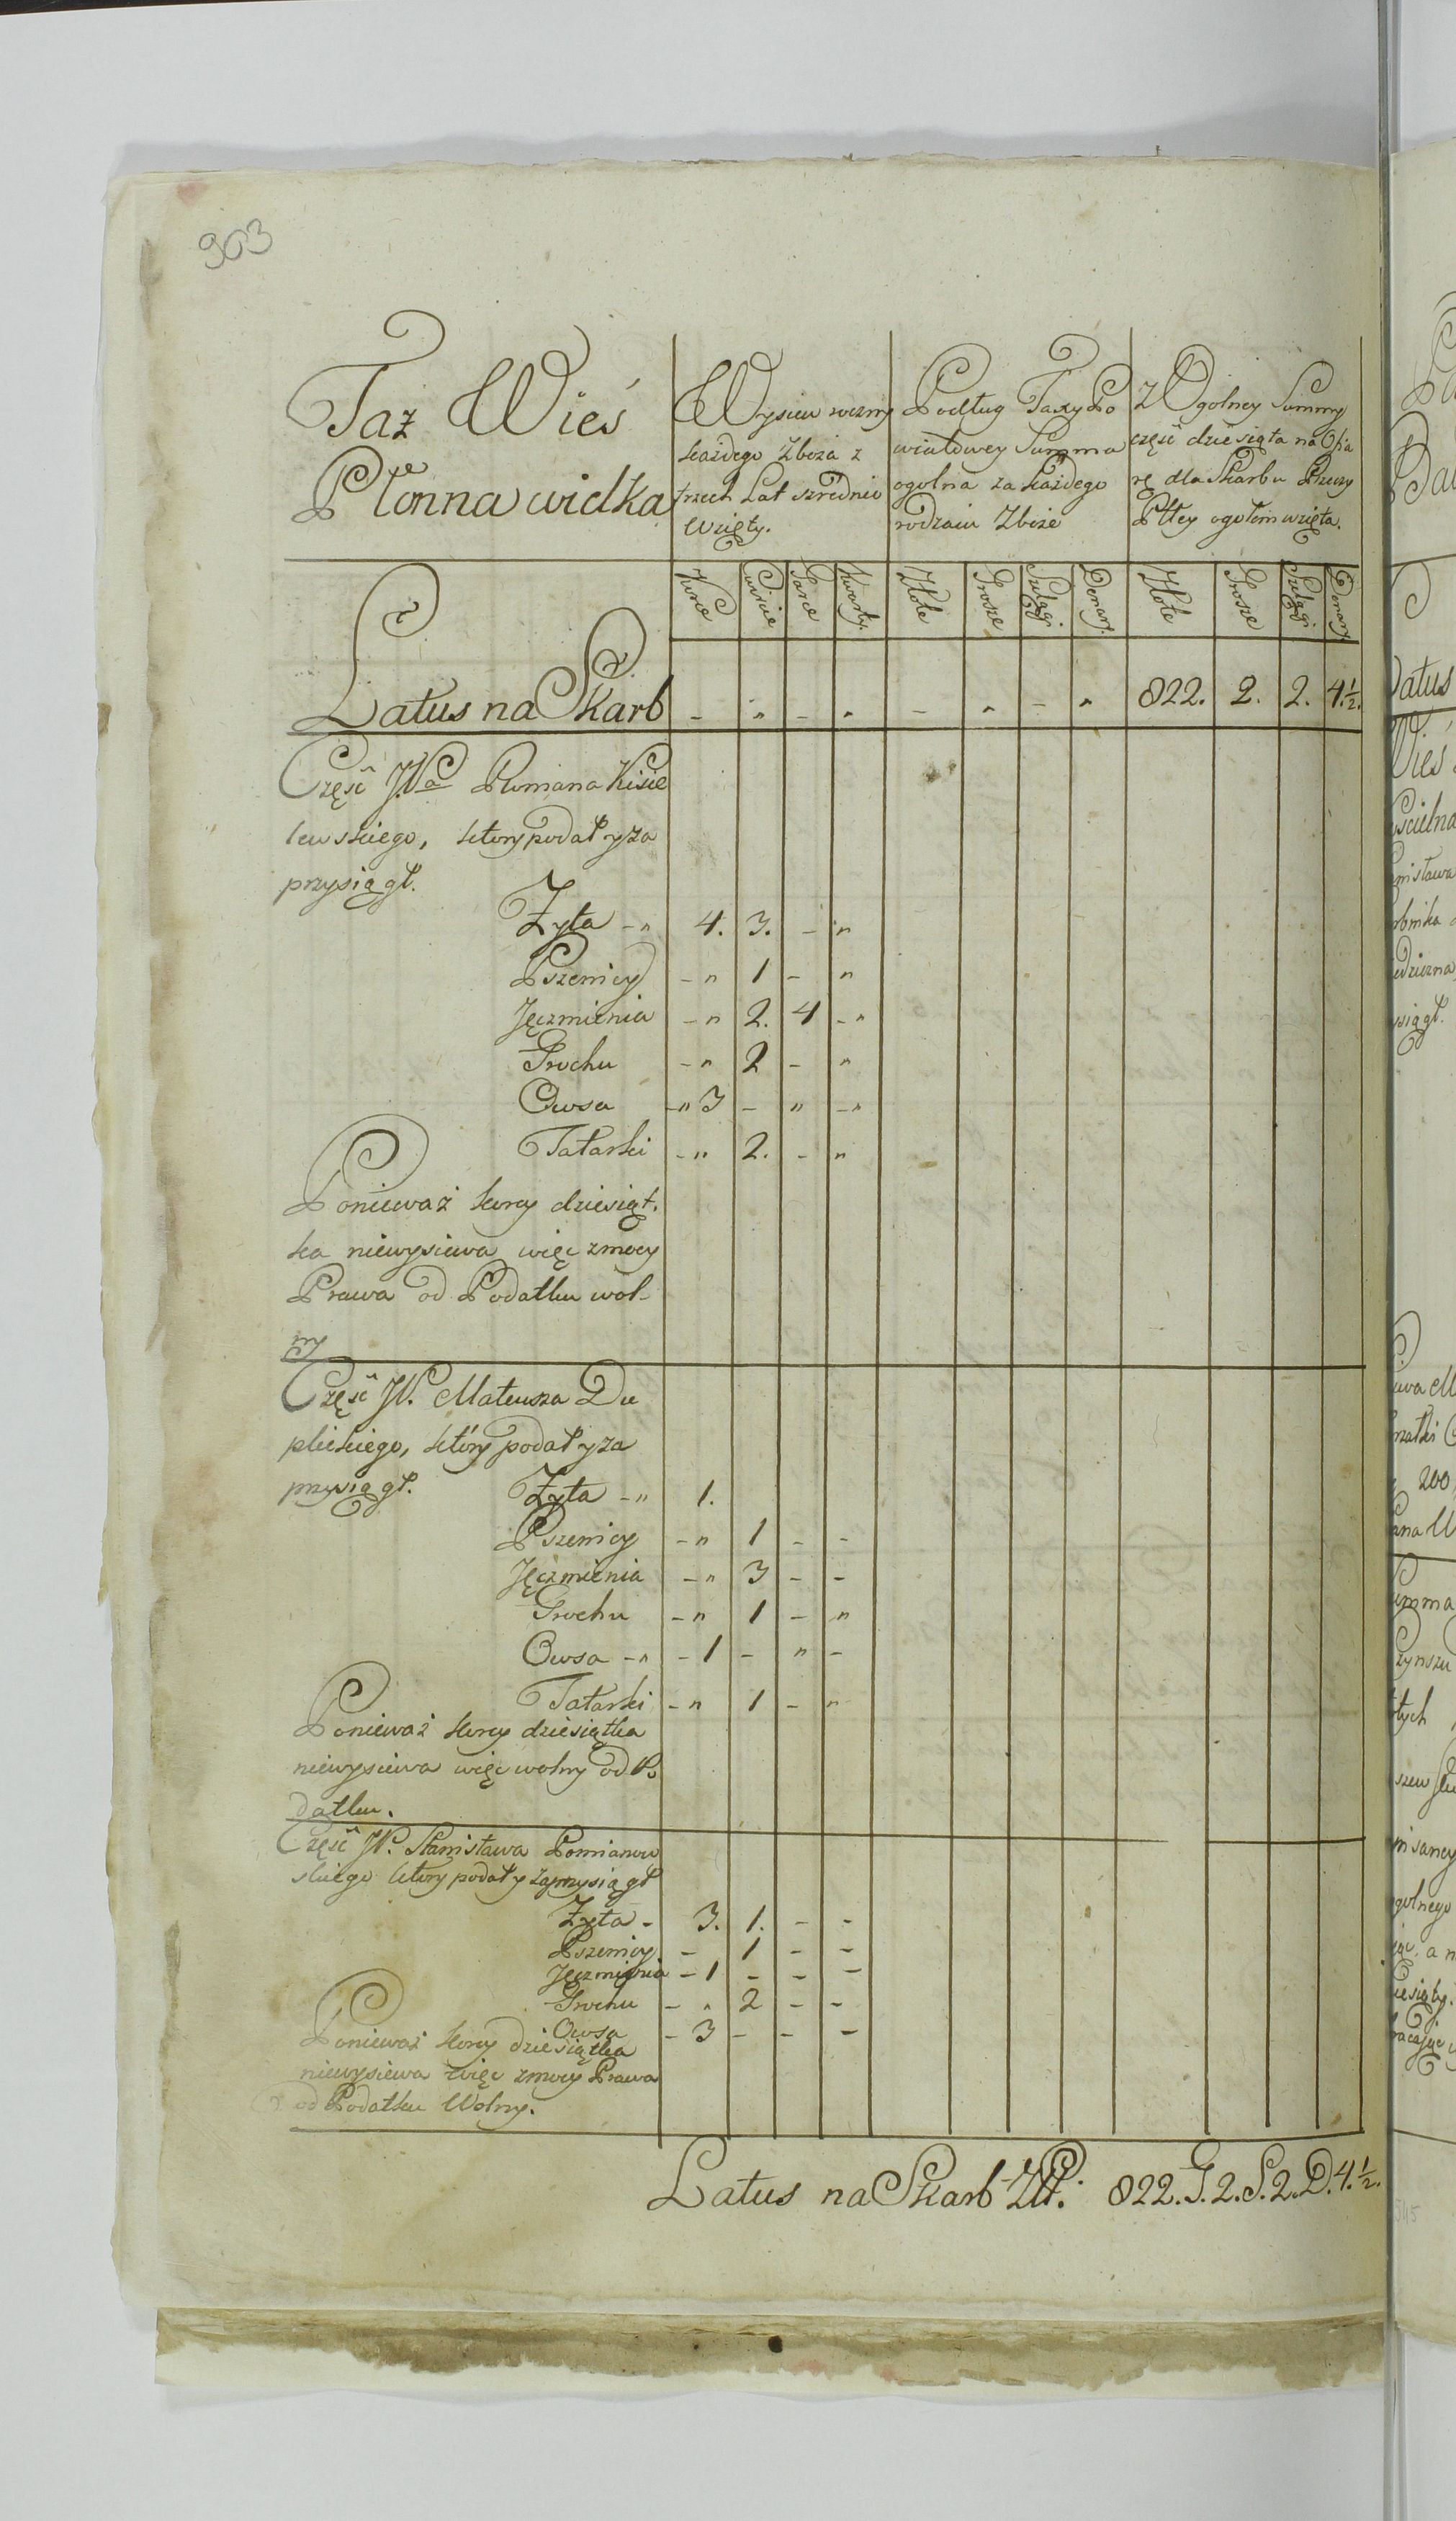 903
Taż Wieś
Płonna wielka
Wysiew roczny
każdego Zboża z
trzech Lat szrednio
wzięty.
Podług Taxy Po
wiatowey Summa
ogolna za każdego
rodzaiu Zboże
Z Ogolney Summy
część dziesiąta na Ofia
rę dla Skarbu Rzeczy
Pltey ogołem wzięta.
Korce Cwierci Garce Kwarty. Złote Grosze Szelągi Denary. Złote Grosze Szelągi Denary
Latus na Skarb - " - " - " - " 822. 2. 2. 4.½.
Część JPa Romana Kisie
lewskiego, ktory podał y za
przysiągł.
Zyta - " 4. 3. - "
Pszenicy - " 1 - "
Jęczmienia - " 2. 4 - "
Grochu - " 2 - "
Owsa - " 3 - " - "
Tatarki - " 2. - "
Ponieważ korcy dziesiąt.
ka niewysiewa więc zmocy
Prawa od Podatku wol-
ny
Część JP. Mateusza Du
plickiego, który podał y za
przysiągł.
Zyta - " 1.
Pszenicy - " 1 - -
Jęczmienia - " 3 - -
Grochu - " 1 - "
Owsa - " - 1 - " -
Tatarki - " 1 - "
Ponieważ korcy dziesiątka
niewysiewa więc wolny od Po
datku.
Część JP. Stanisława Pomianow
skiego ktory podał y zaprzysiągł
Zyta - 3. 1. - -
Pszenicy. - 1 - -
Jęczmienia - 1 - - -
Grochu - " 2 - -
Owsa - 3 - - -
Ponieważ korcy dziesiątka
niewysiewa więc zmocy Prawa
od Podatku Wolny.
Latus na Skarb ZłP. 822. G. 2. S. 2. D. 4.½.